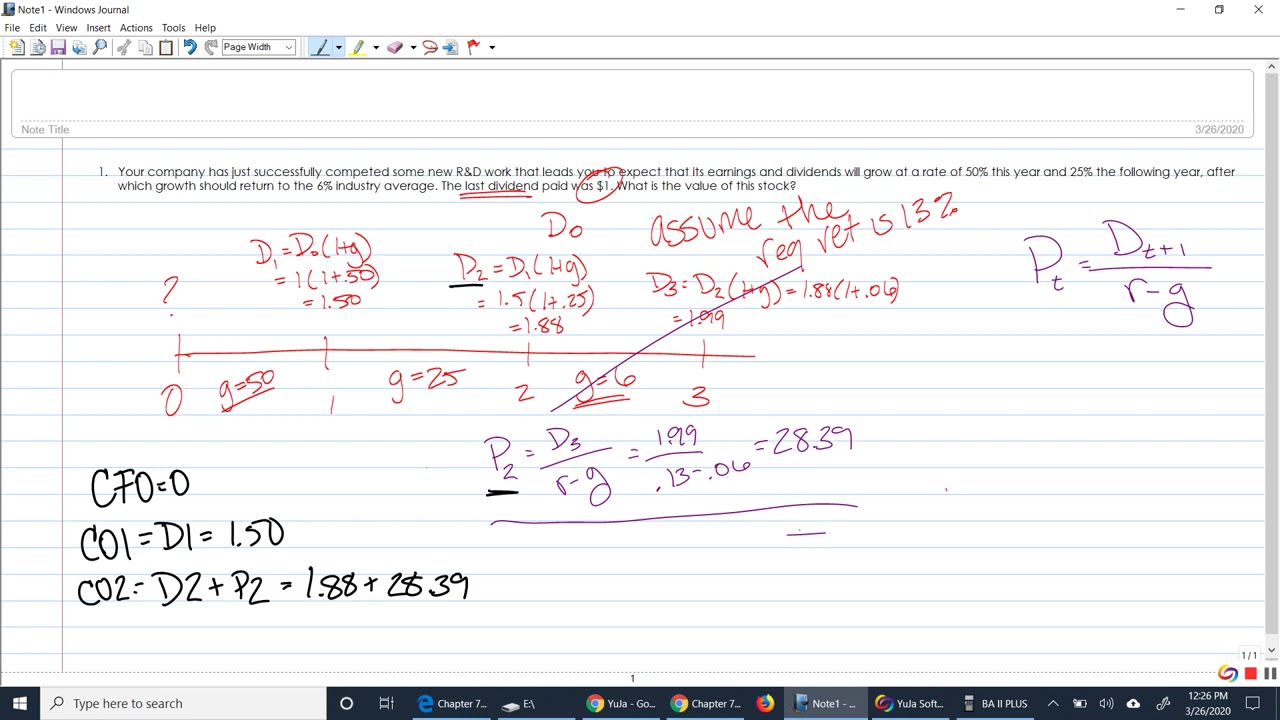 Note1 - Windows Journal
File Edit View Insert Actions Tools Help
Page Width
Note Title
3/26/2020
1. Your company has just successfully competed some new R&D work that leads you to expect that its earnings and dividends will grow at a rate of 50% this year and 25% the following year, after
which growth should return to the 6% industry average. The last dividend paid was $1. What is the value of this stock?
D0
assume the
req ret is 13%
Pt = Dt+1
r-g
?
D1 = D0(1+g)
= 1(1+.50)
= 1.50
D2 = D1(1+g)
= 1.5(1+.25)
= 1.88
D3 = D2(1+g) = 1.88(1+.06)
= 1.99
0 g=50 1 g=25 2 g=6 3
P2 = D3 = 1.99 = 28.39
r-g .13-.06
CF0=0
C01 = D1 = 1.50
C02 = D2 + P2 = 1.88 + 28.39
1/1
1
Type here to search
Chapter 7...
E:\
YuJa - Go...
Chapter 7...
Note1 - ...
YuJa Soft...
BA II PLUS
12:26 PM
3/26/2020